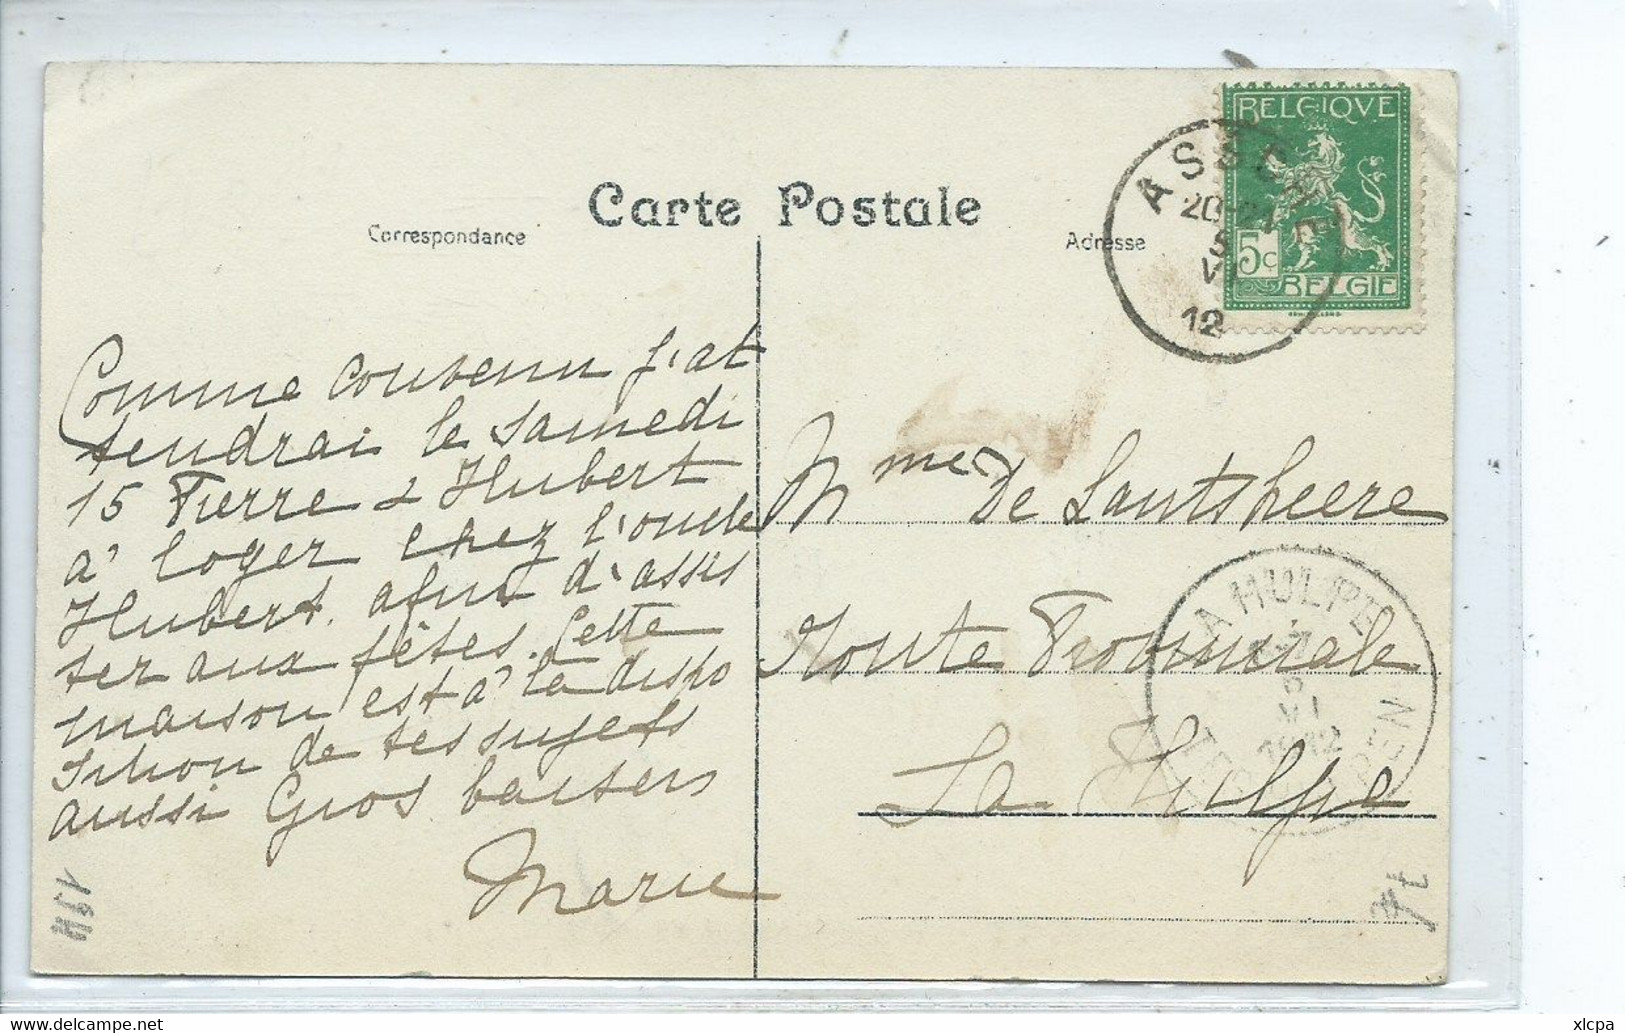 BELGIQVE
5c
BELGIE
ASSCHE
20-21
5
12
Carte Postale
Correspondance
Adresse
Comme convenu j'at
tendrai le samedi
15 Pierre & Hubert
à loger chez l'oncle
Hubert. afin d'assis
ter aux fêtes. Cette
maison est à la dispo
sition de tes sujets
aussi Gros baisers
Marie
Mme De Lantsheere
Route Provinciale
La Hulpe
LA HULPE
VI
1912
TERHULPEN
xlcpa